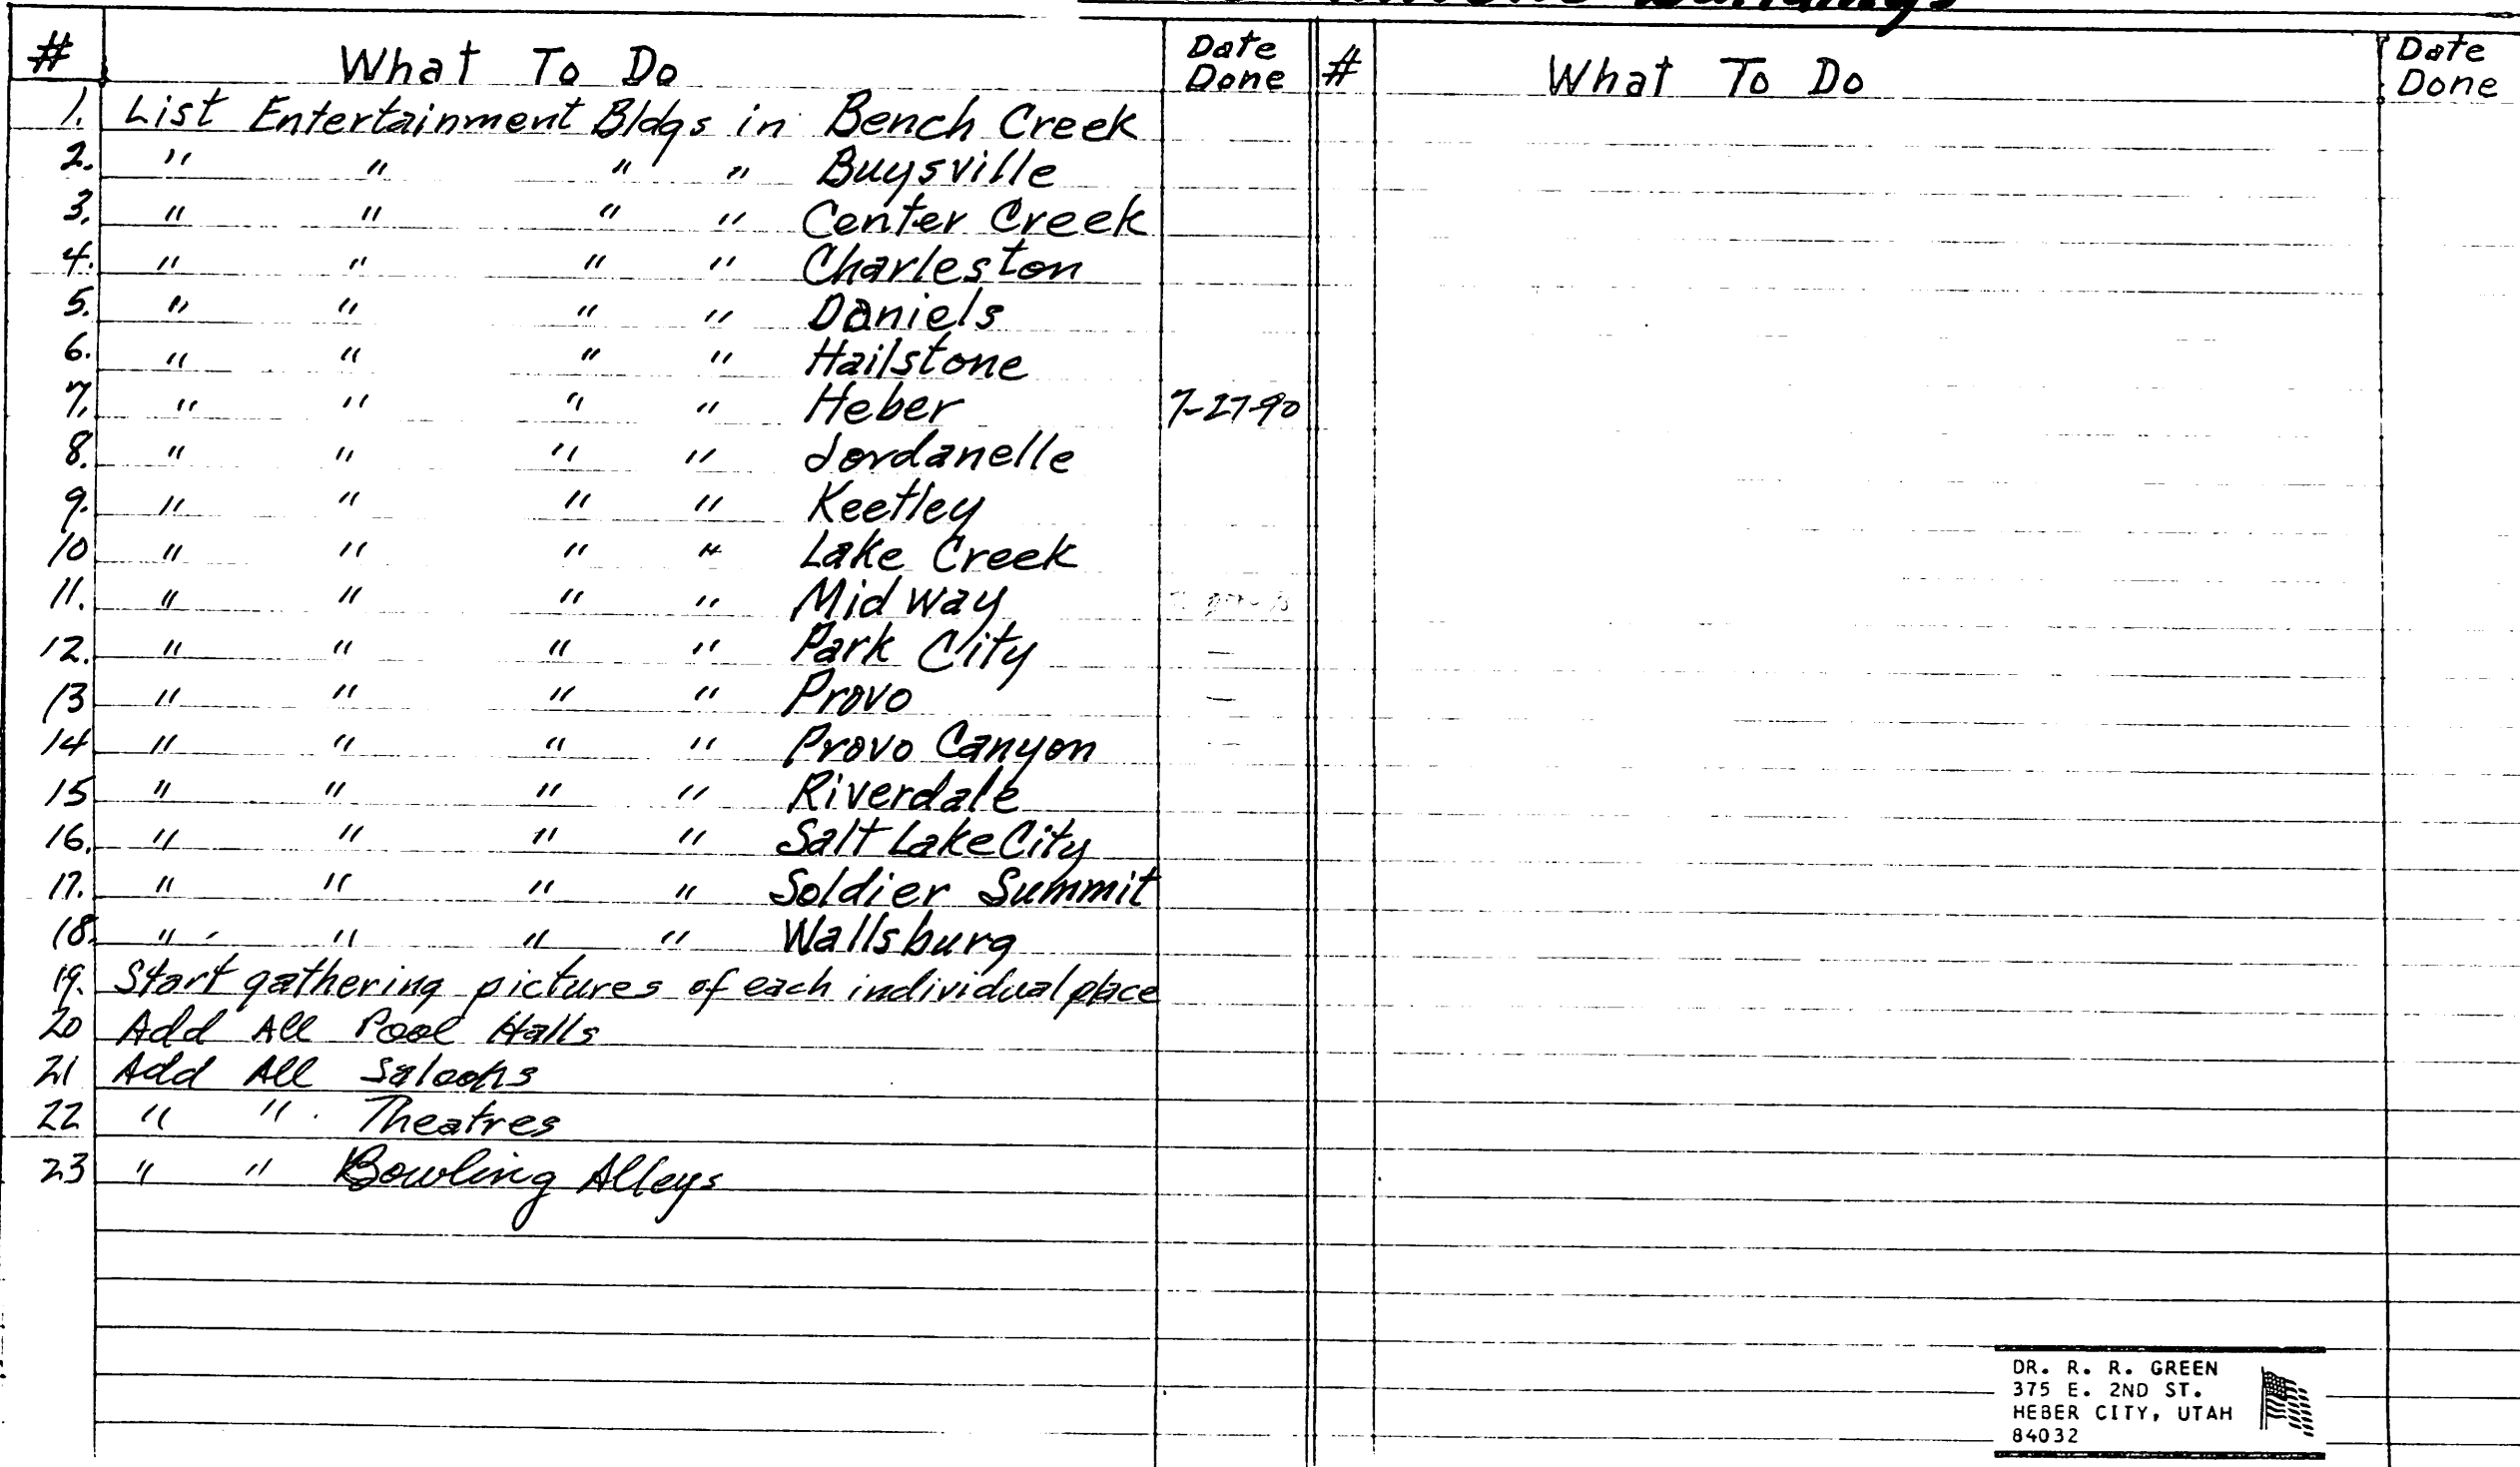 Buildings
# What To Do Date Done # What To Do Date Done
1. List Entertainment Bldgs in Bench Creek
2. " " " " Buysville
3. " " " " Center Creek
4. " " " " Charleston
5. " " " " Daniels
6. " " " " Hailstone
7. " " " " Heber 7-27-90
8. " " " " Jordanelle
9. " " " " Keetley
10 " " " " Lake Creek
11. " " " " Midway
12. " " " " Park City —
13 " " " " Provo —
14 " " " " Provo Canyon —
15 " " " " Riverdale
16. " " " " Salt Lake City
17. " " " " Soldier Summit
18. " " " " Wallsburg
19. Start gathering pictures of each individual place
20 Add All Pool Halls
21 Add All Saloons
22 " " Theatres
23 " " Bowling Alleys
DR. R. R. GREEN
375 E. 2ND ST.
HEBER CITY, UTAH
84032